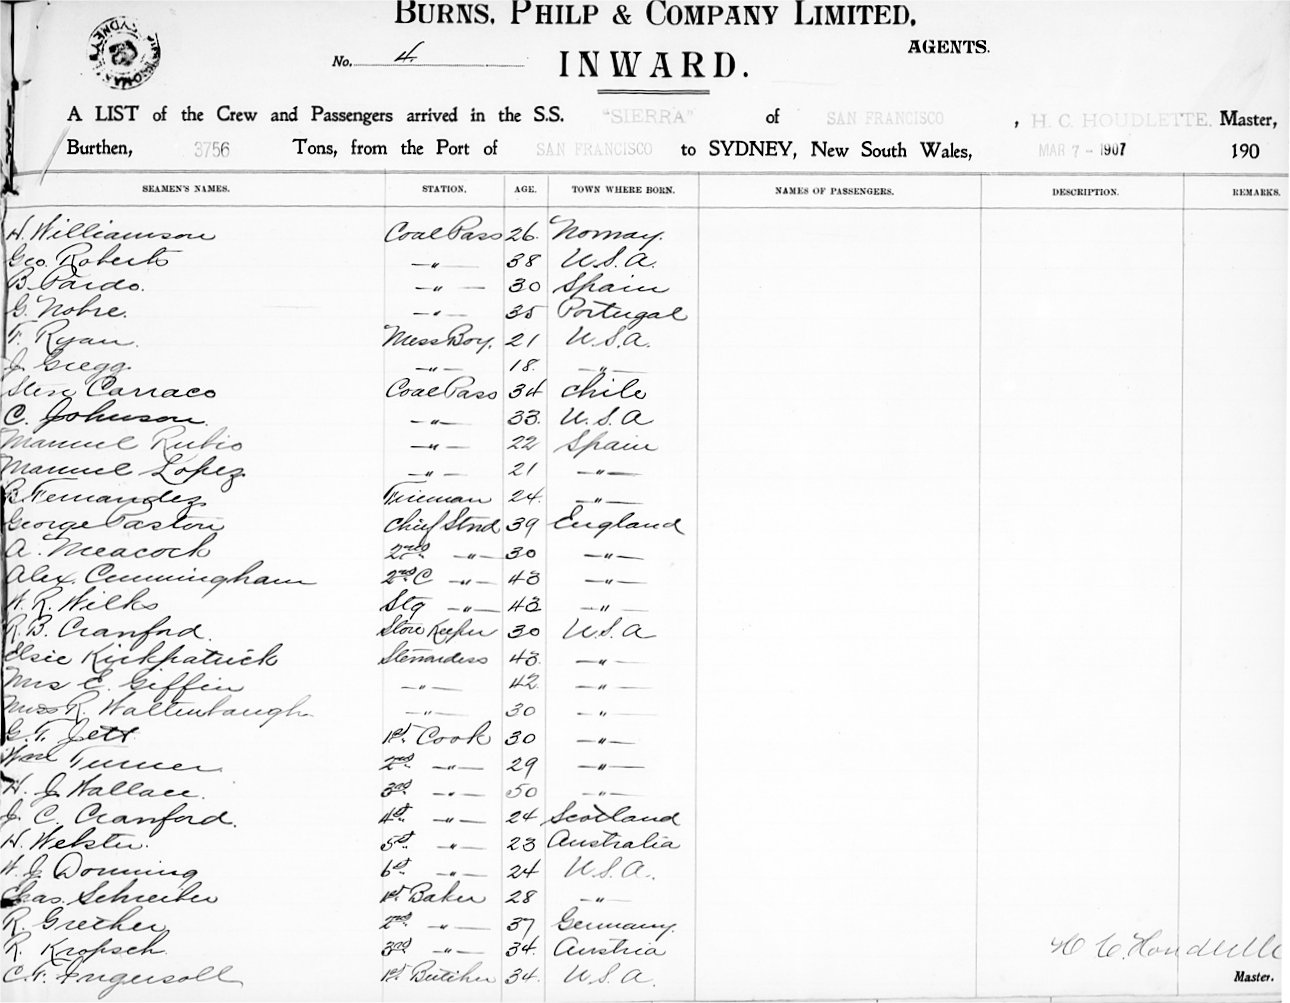 BURNS, PHILP & COMPANY LIMITED,
AGENTS.
No. 4
INWARD.
A LIST of the Crew and Passengers arrived in the S.S. "SIERRA" of SAN FRANCISCO, H. C. HOUDLETTE. Master,
Burthen, 3756 Tons, from the Port of SAN FRANCISCO to SYDNEY, New South Wales, MAR 7 - 1907 190
SEAMEN'S NAMES. STATION. AGE. TOWN WHERE BORN. NAMES OF PASSENGERS. DESCRIPTION. REMARKS.
H. Williamson Coal Pass 26. Norway.
Geo. Roberts —"— 38 U.S.A.
B. Pardo. —"— 30 Spain
G. Nobre. —"— 35 Portugal
F. Ryan. Mess Boy. 21 U.S.A.
J. Gregg. —"— 18. —"—
Carraco Coal Pass 34 Chile
C. Johnson. —"— 33. U.S.A
Manuel Rubio —"— 22 Spain
Manuel Lopez —"— 21 —"—
B. Fernandez Fireman 24. —"—
George Paston Chief Stwd 39 England
A. Meacock 2nd —"— 30 —"—
Alex. Cunningham 2nd C —"— 43 —"—
W. R. Wilks Stg —"— 43 —"—
R. B. Cranford. Store Keeper 30 U.S.A
Elsie Kirkpatrick Stewardess 43. —"—
Mrs E. Giffin —"— 42 —"—
Miss R. Waltenbaugh —"— 30 —"—
G. T. Jett 1st. Cook 30 —"—
Wm Turner 2nd —"— 29 —"—
H. J. Wallace. 3rd —"— 50 —"—
J. C. Cranford. 4st. —"— 24 Scotland
H. Webster. 5st. —"— 23 Australia
W. J. Donning 6st —"— 24 U.S.A.
Chas. Schreiber 1st. Baker 28 —"—
R. Grether 2nd —"— 37 Germany.
R. Kropsch. 3rd —"— 34. Austria
C. F. Ingersoll 1st. Butcher 34. U.S.A.
H C. Houdlette
Master.